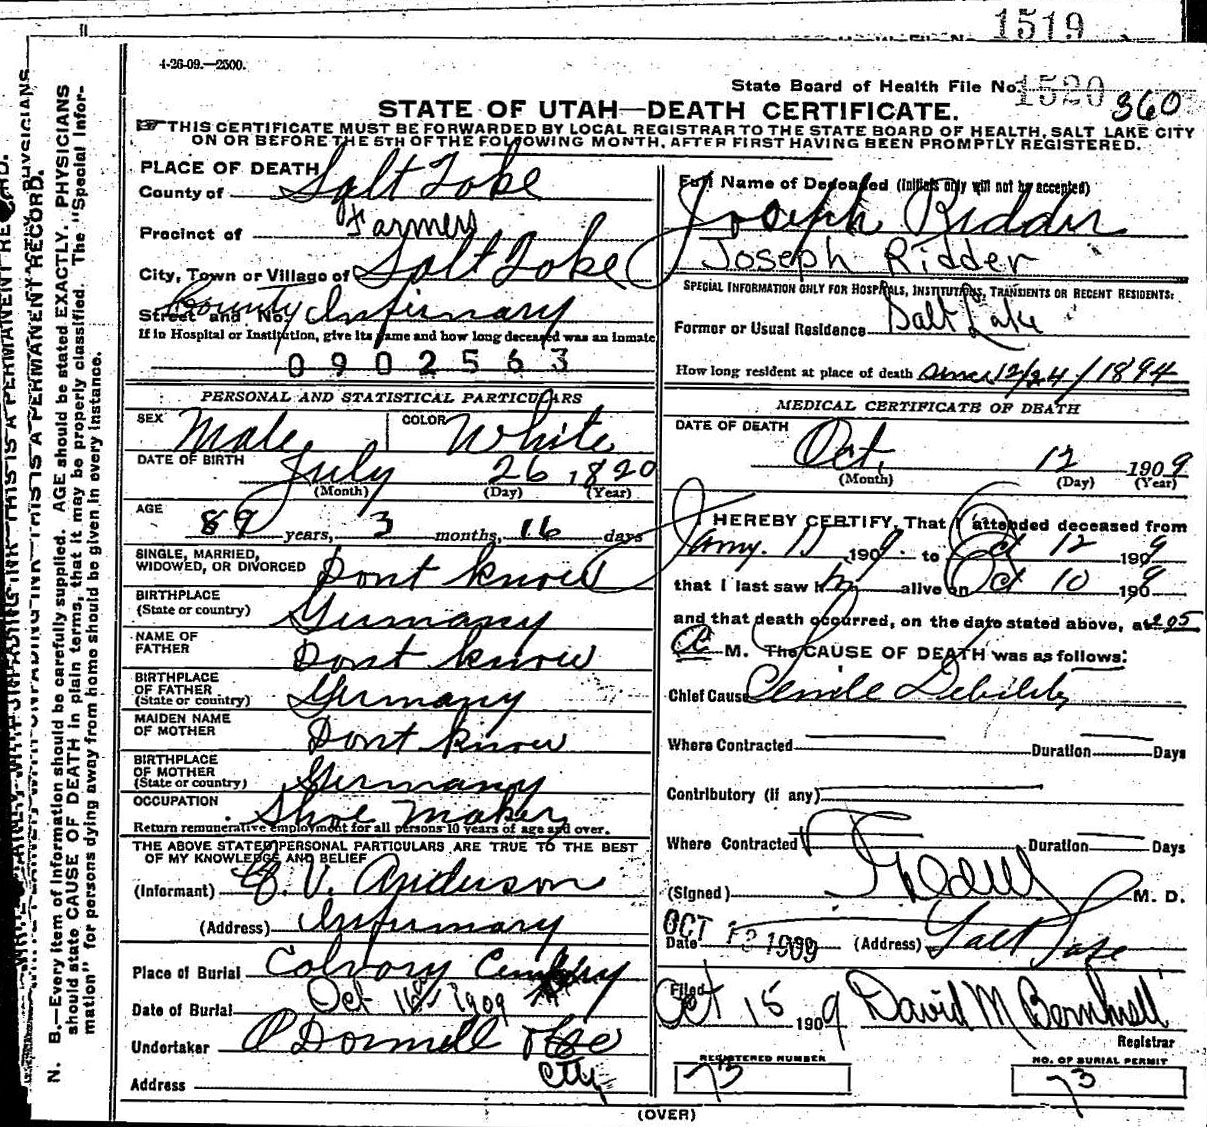 1519
4-26-09.—2500.
State Board of Health File No. 1520 360
STATE OF UTAH—DEATH CERTIFICATE.
THIS CERTIFICATE MUST BE FORWARDED BY LOCAL REGISTRAR TO THE STATE BOARD OF HEALTH, SALT LAKE CITY
ON OR BEFORE THE 5TH OF THE FOLLOWING MONTH, AFTER FIRST HAVING BEEN PROMPTLY REGISTERED.
PLACE OF DEATH
County of Salt Lake
Precinct of Farmers
City, Town or Village of Salt Lake
Street and No. County Infirmary
If in Hospital or Institution, give its name and how long deceased was an inmate
0902563
PERSONAL AND STATISTICAL PARTICULARS
SEX Male COLOR White
DATE OF BIRTH July 26, 1820
(Month) (Day) (Year)
AGE
89 years, 3 months, 16 days
SINGLE, MARRIED,
WIDOWED, OR DIVORCED Dont know
BIRTHPLACE
(State or country) Germany
NAME OF
FATHER Dont know
BIRTHPLACE
OF FATHER
(State or country) Germany
MAIDEN NAME
OF MOTHER Dont know
BIRTHPLACE
OF MOTHER
(State or country) Germany
OCCUPATION Shoe Maker
Return remunerative employment for all persons 10 years of age and over.
THE ABOVE STATED PERSONAL PARTICULARS ARE TRUE TO THE BEST
OF MY KNOWLEDGE AND BELIEF
(Informant) V. Anderson
(Address) Infirmary
Place of Burial Calvary
Date of Burial Oct 16 1909
Undertaker O Donnell
Address City
Full Name of Deceased (Initials only will not be accepted)
Joseph Ridder
Joseph Ridder
SPECIAL INFORMATION ONLY FOR HOSPITALS, INSTITUTIONS, TRANSIENTS OR RECENT RESIDENTS:
Former or Usual Residence Salt Lake
How long resident at place of death since 12/24/1894
MEDICAL CERTIFICATE OF DEATH
DATE OF DEATH
Oct. 12 1909
(Month) (Day) (Year)
I HEREBY CERTIFY, That I attended deceased from
Jany. 1909 to Oct 12 1909
that I last saw him alive on Oct 10 1909
and that death occurred, on the date stated above, at 2 05
A M. The CAUSE OF DEATH was as follows:
Chief Cause Senile Debility
Where Contracted Duration Days
Contributory (if any)
Where Contracted Duration Days
(Signed) M. D.
Date OCT 13 1909 (Address) Salt Lake
Filed
Oct 15 1909 David M
Registrar
REGISTERED NUMBER
73
NO. OF BURIAL PERMIT
73
(OVER)
N. B.—Every item of information should be carefully supplied. AGE should be stated EXACTLY. PHYSICIANS
should state CAUSE OF DEATH in plain terms, that it may be properly classified. The "Special Infor-
mation" for persons dying away from home should be given in every instance.
THIS IS A PERMANENT RECORD.